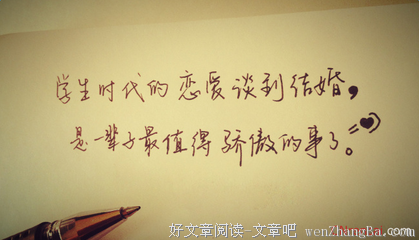 学生时代的恋爱谈到结婚，
是一辈子最值得骄傲的事了。
好文章阅读-文章吧 wenZhangBa.com